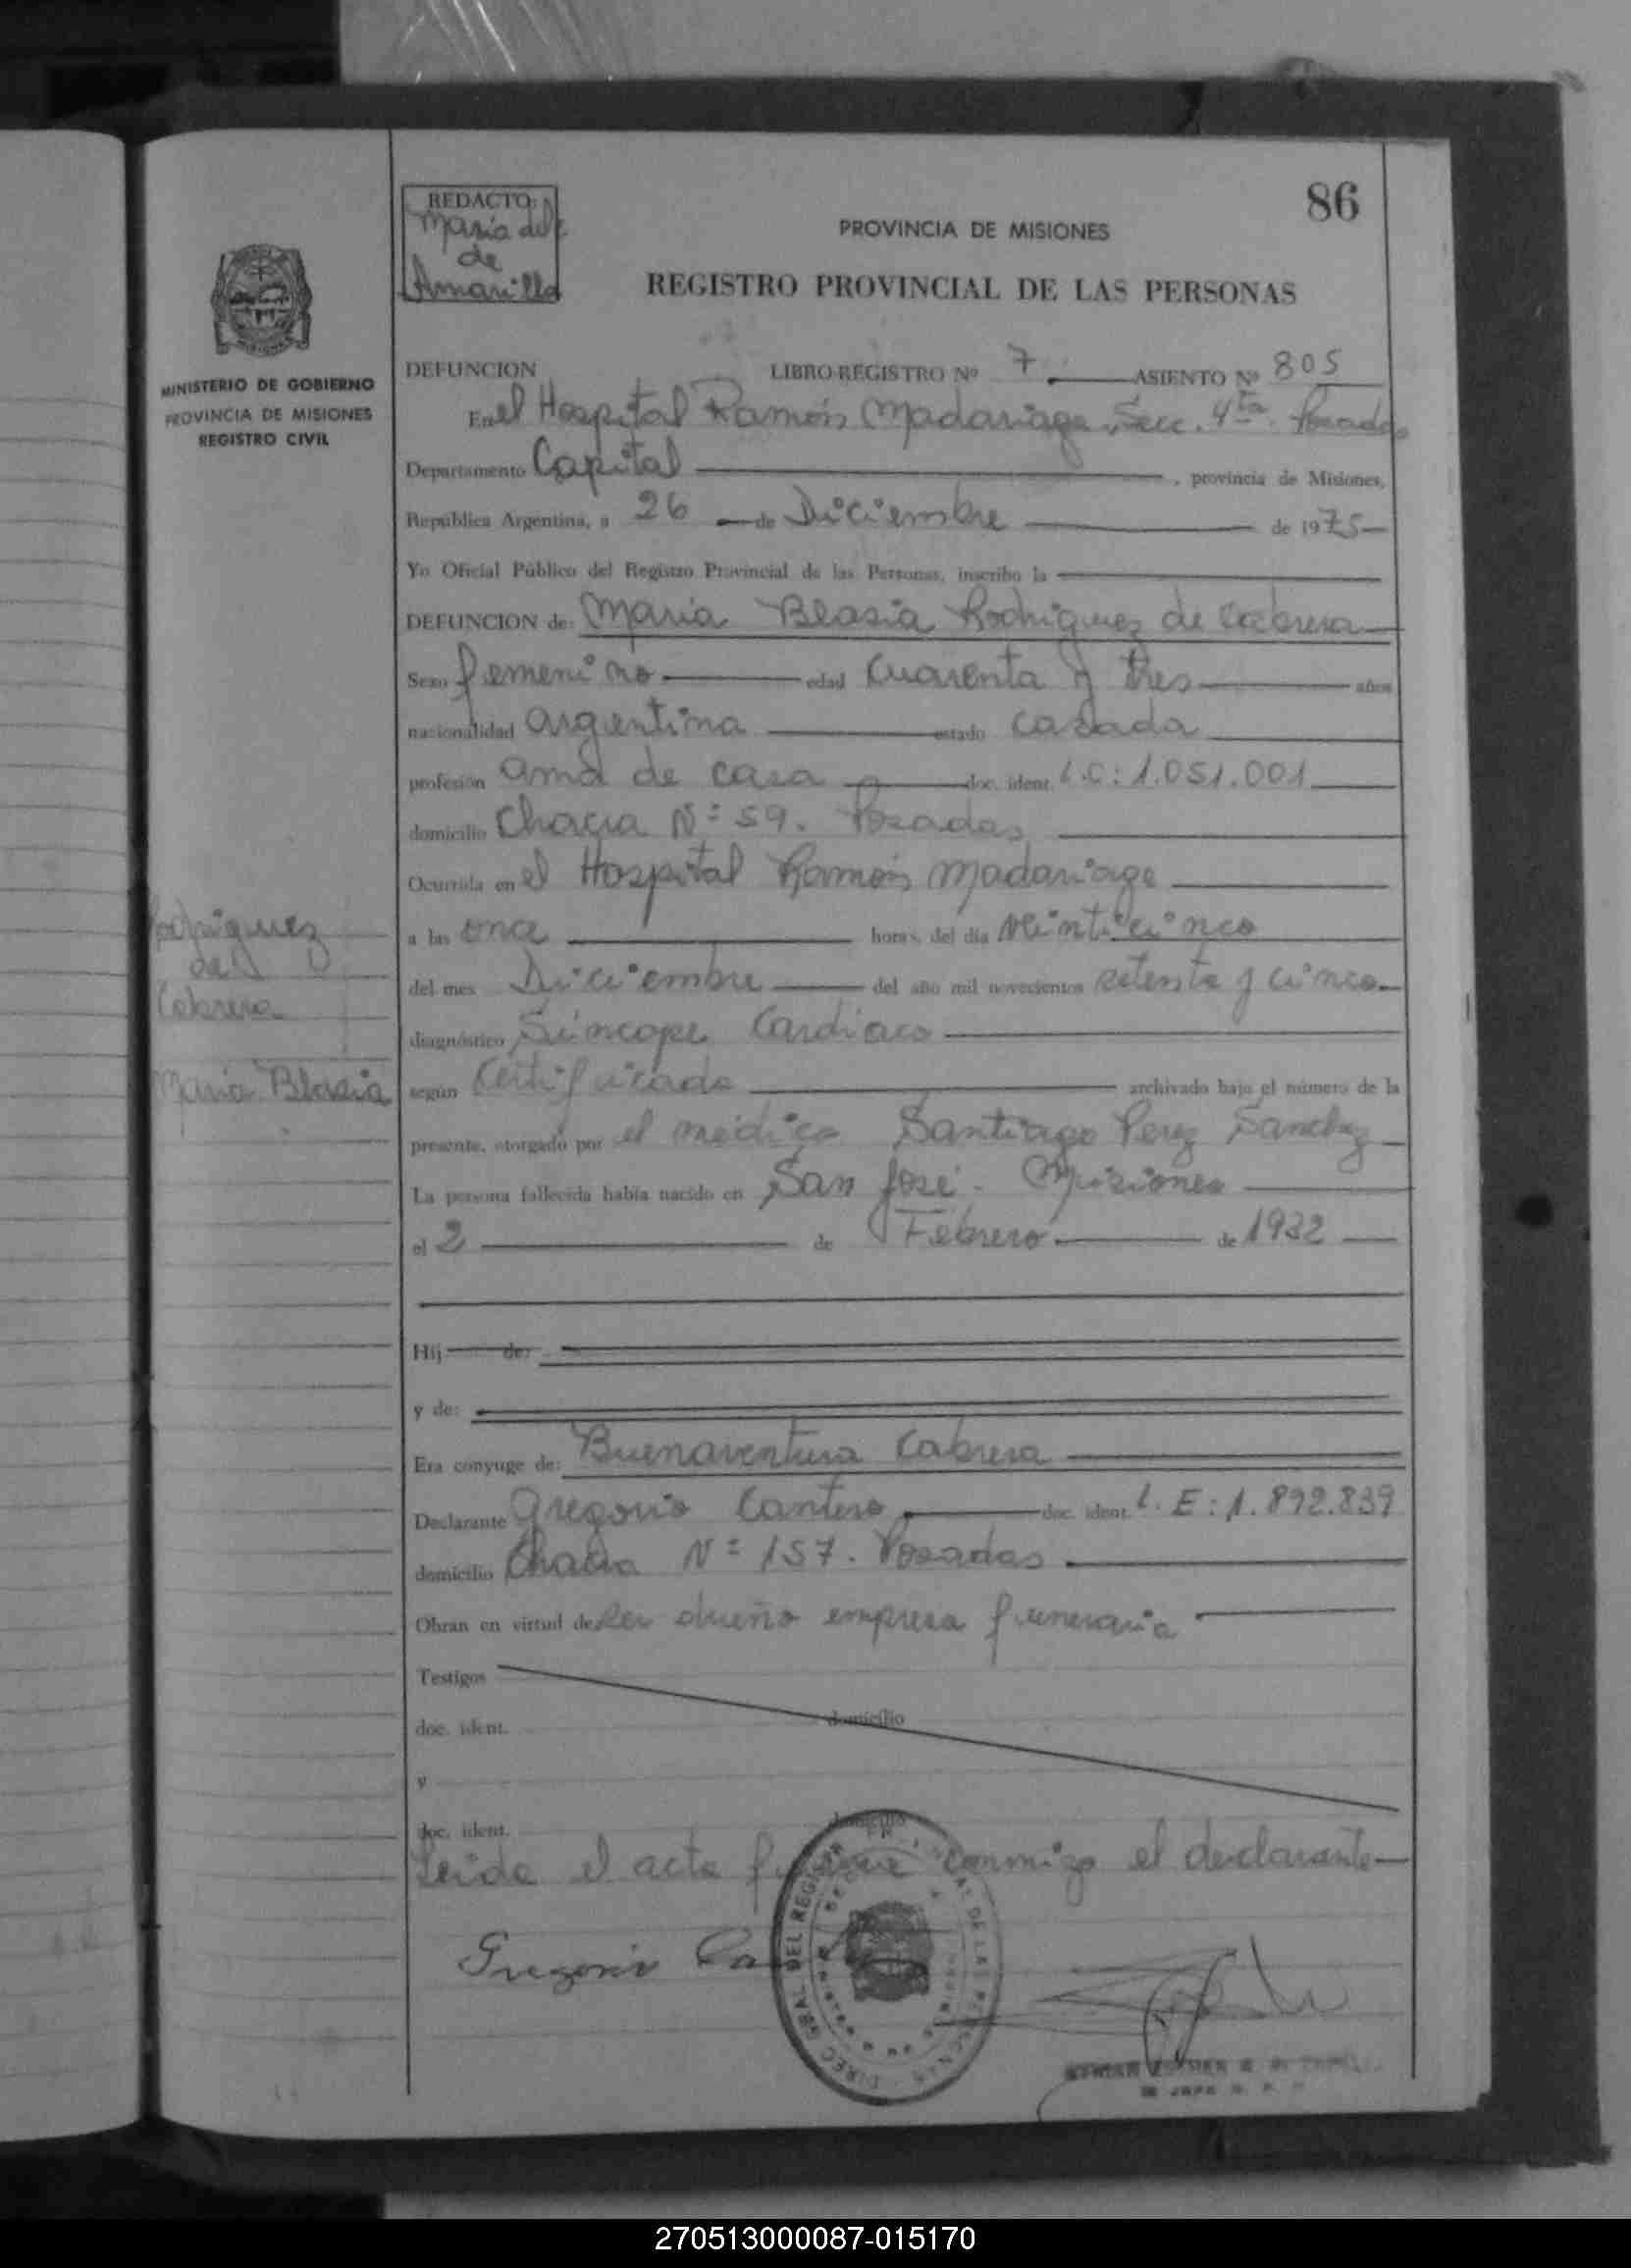 86
REDACTO:
Maria del
de
Amarilla
PROVINCIA DE MISIONES
REGISTRO PROVINCIAL DE LAS PERSONAS
MINISTERIO DE GOBIERNO
PROVINCIA DE MISIONES
REGISTRO CIVIL
DEFUNCION LIBRO REGISTRO Nº 7 ASIENTO Nº 805
En el Hospital Ramón Madariaga, Secc. 4ta. Posadas
Departamento Capital , provincia de Misiones,
República Argentina, a 26 de Diciembre de 1975
Yo Oficial Público del Registro Provincial de las Personas, inscribo la
DEFUNCION de: Maria Blasia Rodriguez de Cabrera
Sexo femenino edad Cuarenta y tres años
nacionalidad argentina estado casada
profesión ama de casa doc. ident. L.C: 1.051.001
domicilio Chacra Nº 59. Posadas
Ocurrida en el Hospital Ramón Madariaga
a las once horas, del día Veinticinco
del mes Diciembre del año mil novecientos setenta y cinco
diagnóstico Síncope Cardiaco
según Certificado archivado bajo el número de la
presente, otorgado por el médico Santiago Perez Sanchez
La persona fallecida había nacido en San José. Misiones
el 2 de Febrero de 1932
Rodriguez
de
Cabrera
Maria Blasia
Hij de:
y de:
Era conyuge de: Buenaventura Cabrera
Declarante Gregorio Cantero doc. ident. L.E: 1.892.839
domicilio Chacra Nº 157. Posadas
Obran en virtud de ser dueño empresa funeraria
Testigos
doc. ident. domicilio
y
doc. ident. domicilio
Leida el acta firma conmigo el declarante
Gregorio
270513000087-015170